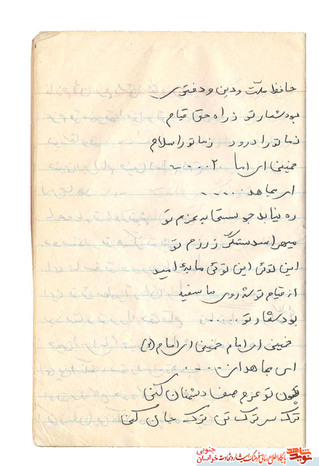 حافظ ملت و دین و دفتوی
بود شعار تو ز راه حق قیام
ز ما تو را درود ز ما تو را سلام
خمینی ای اما ۲ ....
ای مجاهد ....
ره نیابد چو سستی به عزم تو
میهراسد ستمگر ز رزم تو
این توئی این توئی مایۀ امید
از قیام تو شد روی ما سفید
بود شعار تو .....
خمینی ای امام خمینی ای امام (۵)
ای مجاهد ای ....
چون تو عزم صف دشمنان کنی
ترک سر ترک تن ترک جان کنی